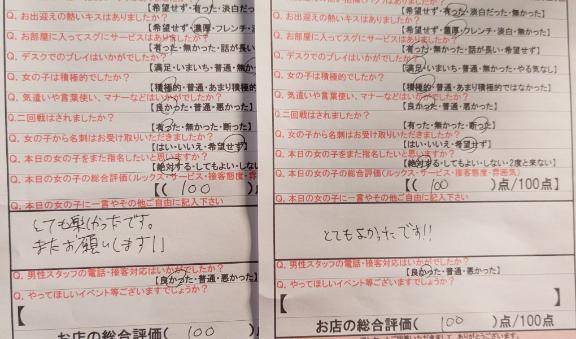 【希望せず・有った・淡白だった・無かった】
Q. お出迎えの熱いキスはありましたか?
【希望せず・濃厚・フレンチ・淡
Q. お部屋に入ってスグにサービスはありましたか?
【有った・無かった・話が長い
Q. デスクでのプレイはいかがでしたか?
【満足・いまいち・普通・無か
Q. 女の子は積極的でしたか?
【積極的・普通・あまり積極
Q. 気遣いや言葉使い、マナーなどはいかがでしたか?
【良かった・普通・悪かった】
Q.二回戦はされましたか?
【有った・無かった・断った】
Q. 女の子から名刺はお受け取りいただきましたか?
【はい・いいえ・希望せず】
Q. 本日の女の子をまた指名したいと思いますか?
【絶対する・してもよい・しない
Q. 本日の女の子の総合評価(ルックス・サービス・接客態度・雰
【( 100 )
Q. 本日の女の子に一言やその他ご自由に記入下さい
とても楽しかったです。
またお願いします!!
Q. 男性スタッフの電話・接客対応はいかがでしたか?
【良かった・普通・悪かった】
Q. やってほしいイベント等ございますでしょうか?
【
お店の総合評価( 100
【希望せず・有った・淡白だった・無かった】
Q. お出迎えの熱いキスはありましたか?
【希望せず・濃厚・フレンチ・淡白・無かった】
Q. お部屋に入ってスグにサービスはありましたか?
【有った・無かった・話が長い・希望せず】
Q. デスクでのプレイはいかがでしたか?
【満足・いまいち・普通・無かった・やる気なし】
Q. 女の子は積極的でしたか?
【積極的・普通・あまり積極的ではなかった】
Q. 気遣いや言葉使い、マナーなどはいかがでしたか?
【良かった・普通・悪かった】
Q.二回戦はされましたか?
【有った・無かった・断った】
Q. 女の子から名刺はお受け取りいただきましたか?
【はい・いいえ・希望せず】
Q. 本日の女の子をまた指名したいと思いますか?
【絶対する・してもよい・しない・2度と来ない】
Q. 本日の女の子の総合評価(ルックス・サービス・接客態度・雰囲気)
【( 100 )点/100点】
Q. 本日の女の子に一言やその他ご自由に記入下さい
とてもよかったです!!
Q. 男性スタッフの電話・接客対応はいかがでしたか?
【良かった・普通・悪かった】
Q. やってほしいイベント等ございますでしょうか?
【 】
お店の総合評価( 100 )点/100点